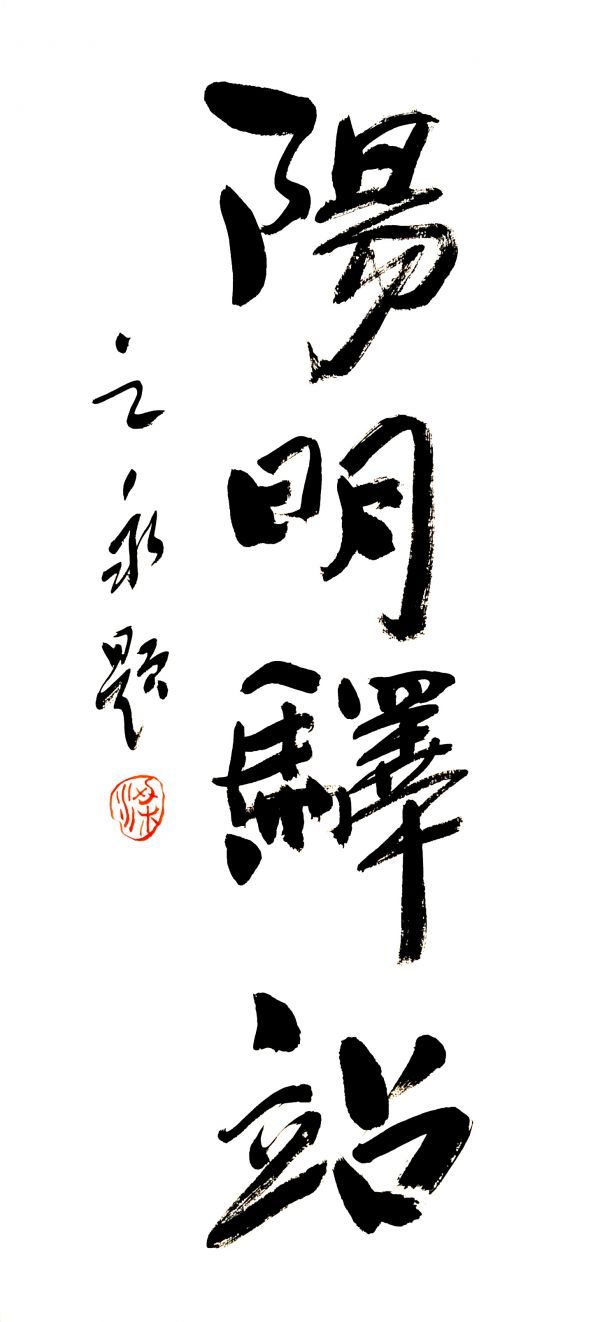 陽明驛站
之永題
梁